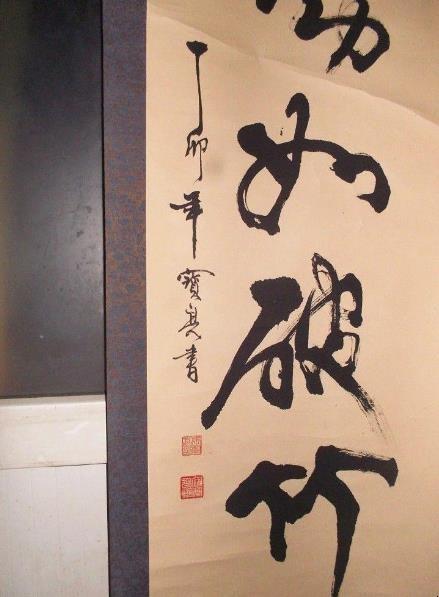 如破竹
丁卯年寶書